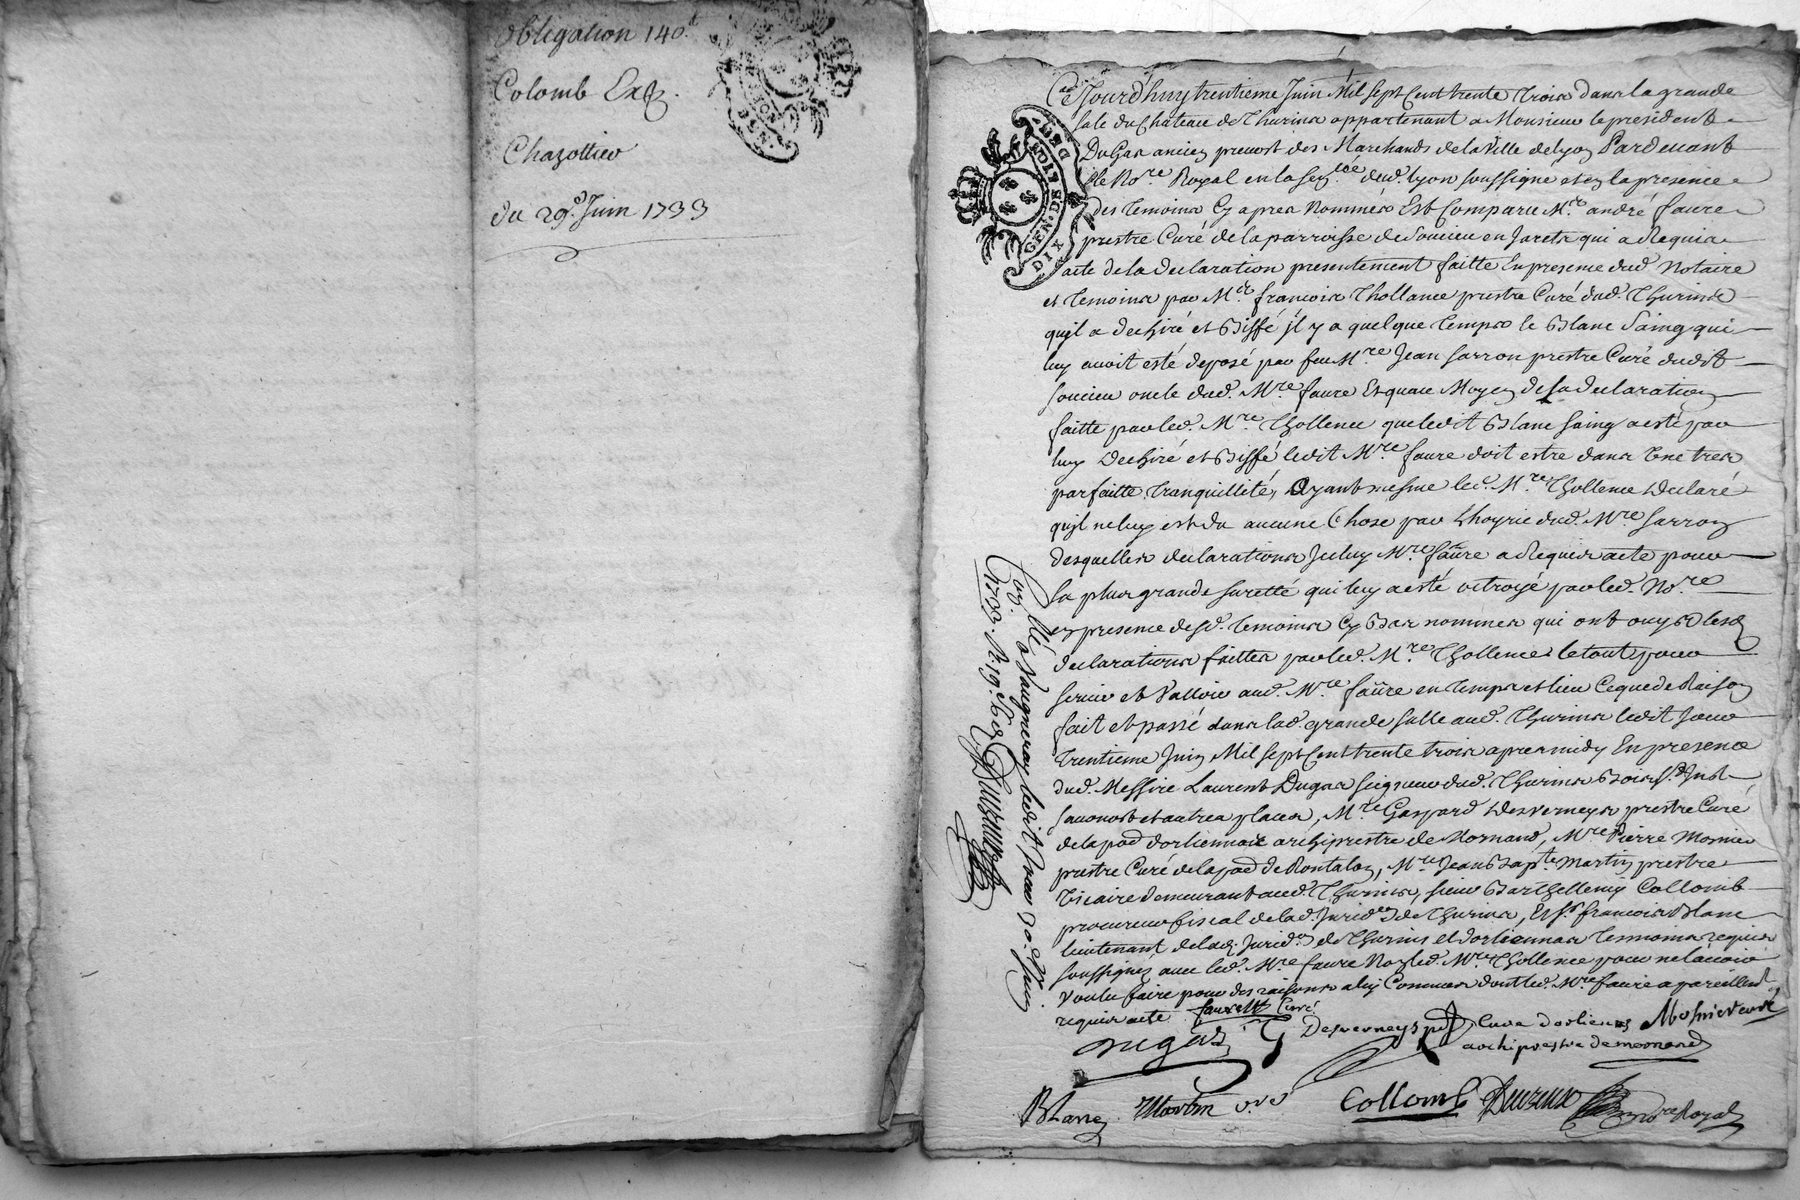 obligation 140.lt
Colomb Exp.
Chazottier
du 29e. Juin 1733
GEN. DE LION. DES
DIX
Cejourd'huy trentieme Juin Mil sept Cent trente trois dans la grande
sale du Chateau de Thurins appartenant a Monsieur le president
Dugas ancien prevost des Marchands de la Ville de Lyon Pardevant
le No.re Royal en la Sen.cée dud. Lyon soussigne et en la presence
des temoins Cy apres Nommés Est Comparu M.re andré faure
prestre Curé de la parroisse de Soucieu en Jarets qui a Requis
acte de la declaration presentement faitte En presence dud. Notaire
et temoins par M.re francois Thollence prestre Curé dud. Thurins
qu'il a dechiré et Biffé jl y a quelque temps le Blanc Saing qui
luy avoit esté deposé par feu M.re Jean sarron prestre Curé dudit
soucieu oncle dud. M.re faure Et qu'au Moyen de sa declaration
faitte par led. M.re Thollence que ledit Blanc saing a esté par
luy dechiré et Biffé ledit M.re faure doit estre dans Une tres
parfaitte tranquillité, Ayant mesme led. M.re Thollence declaré
qu'il ne luy est du aucune Chose par L'hoyrie dud. M.re sarron
desquelles declarations Jceluy M.re faure a Requis acte pour
sa plus grande suretté qui luy a esté octroyé par led. No.re
en presence desd. temoins Cy Bas nommés qui ont ouy lesd.
declarations faittes par led. M.re Thollence le tout pour
servir et Valloir aud. M.re faure en temps et lieu Ce que de Raison
fait et passé dans lad. grande salle aud. Thurins ledit Jour
trentieme Juin Mil sept Cent trente trois apres midy En presence
dud. Messire Laurent Dugas seigneur dud. Thurins Bois S.t Just
savonost et autres places, M.re Gaspard Desverneys prestre Curé
de la p.sse d'orliennas archiprestre de Mornand, M.re Pierre Mosnier
prestre Curé de la p.sse de Rontalon, M.re Jean Bap.te Martin prestre
Vicaire demeurant aud. Thurins, sieur Barthellemy Collomb
procureur fiscal de lad. Jurid.on de Thurins, Et s.r francois Blanc
lieutenant de lad. Jurid.on de Thurins et d'orliennas temoins requis
soussignés avec led. M.re faure Non led. M.re Thollence pour ne l'avoir
Voulu faire pour des raisons a luy Connues dont led. M.re faure a pareillem.t
requis acte
faure Curé
Dugas
Desverneys ptre Curé d'orlienas
Mosnier curé
archiprestre de mornand
Blanc
Martin vic
Collomb
No.re Royal
Con.llé a Vaugneray ledit Jour 30. Juin
1733. R. 19. s. 6 d.